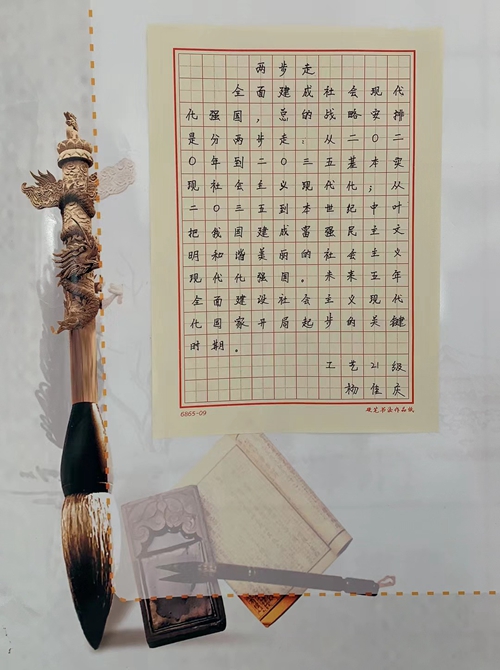 两步走
全面建成社会现代
化强国，总的战略安排
是分两步走：从二〇二
〇年到二〇三五基本实
现社会主义现代化；从
二〇三五到本世纪中叶
把我国建成富强民主文
明和谐美丽的社会主义
现代化强国。未来五年
全面建设社会主义现代
化国家开局起步的关键
时期。
工艺21级
杨佳庆
6868-09
硬笔书法作品纸